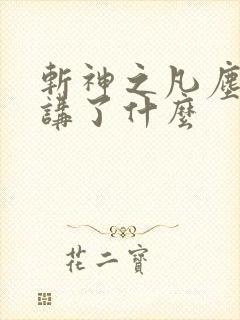 斬神之凡塵
講了什麼
花二寶